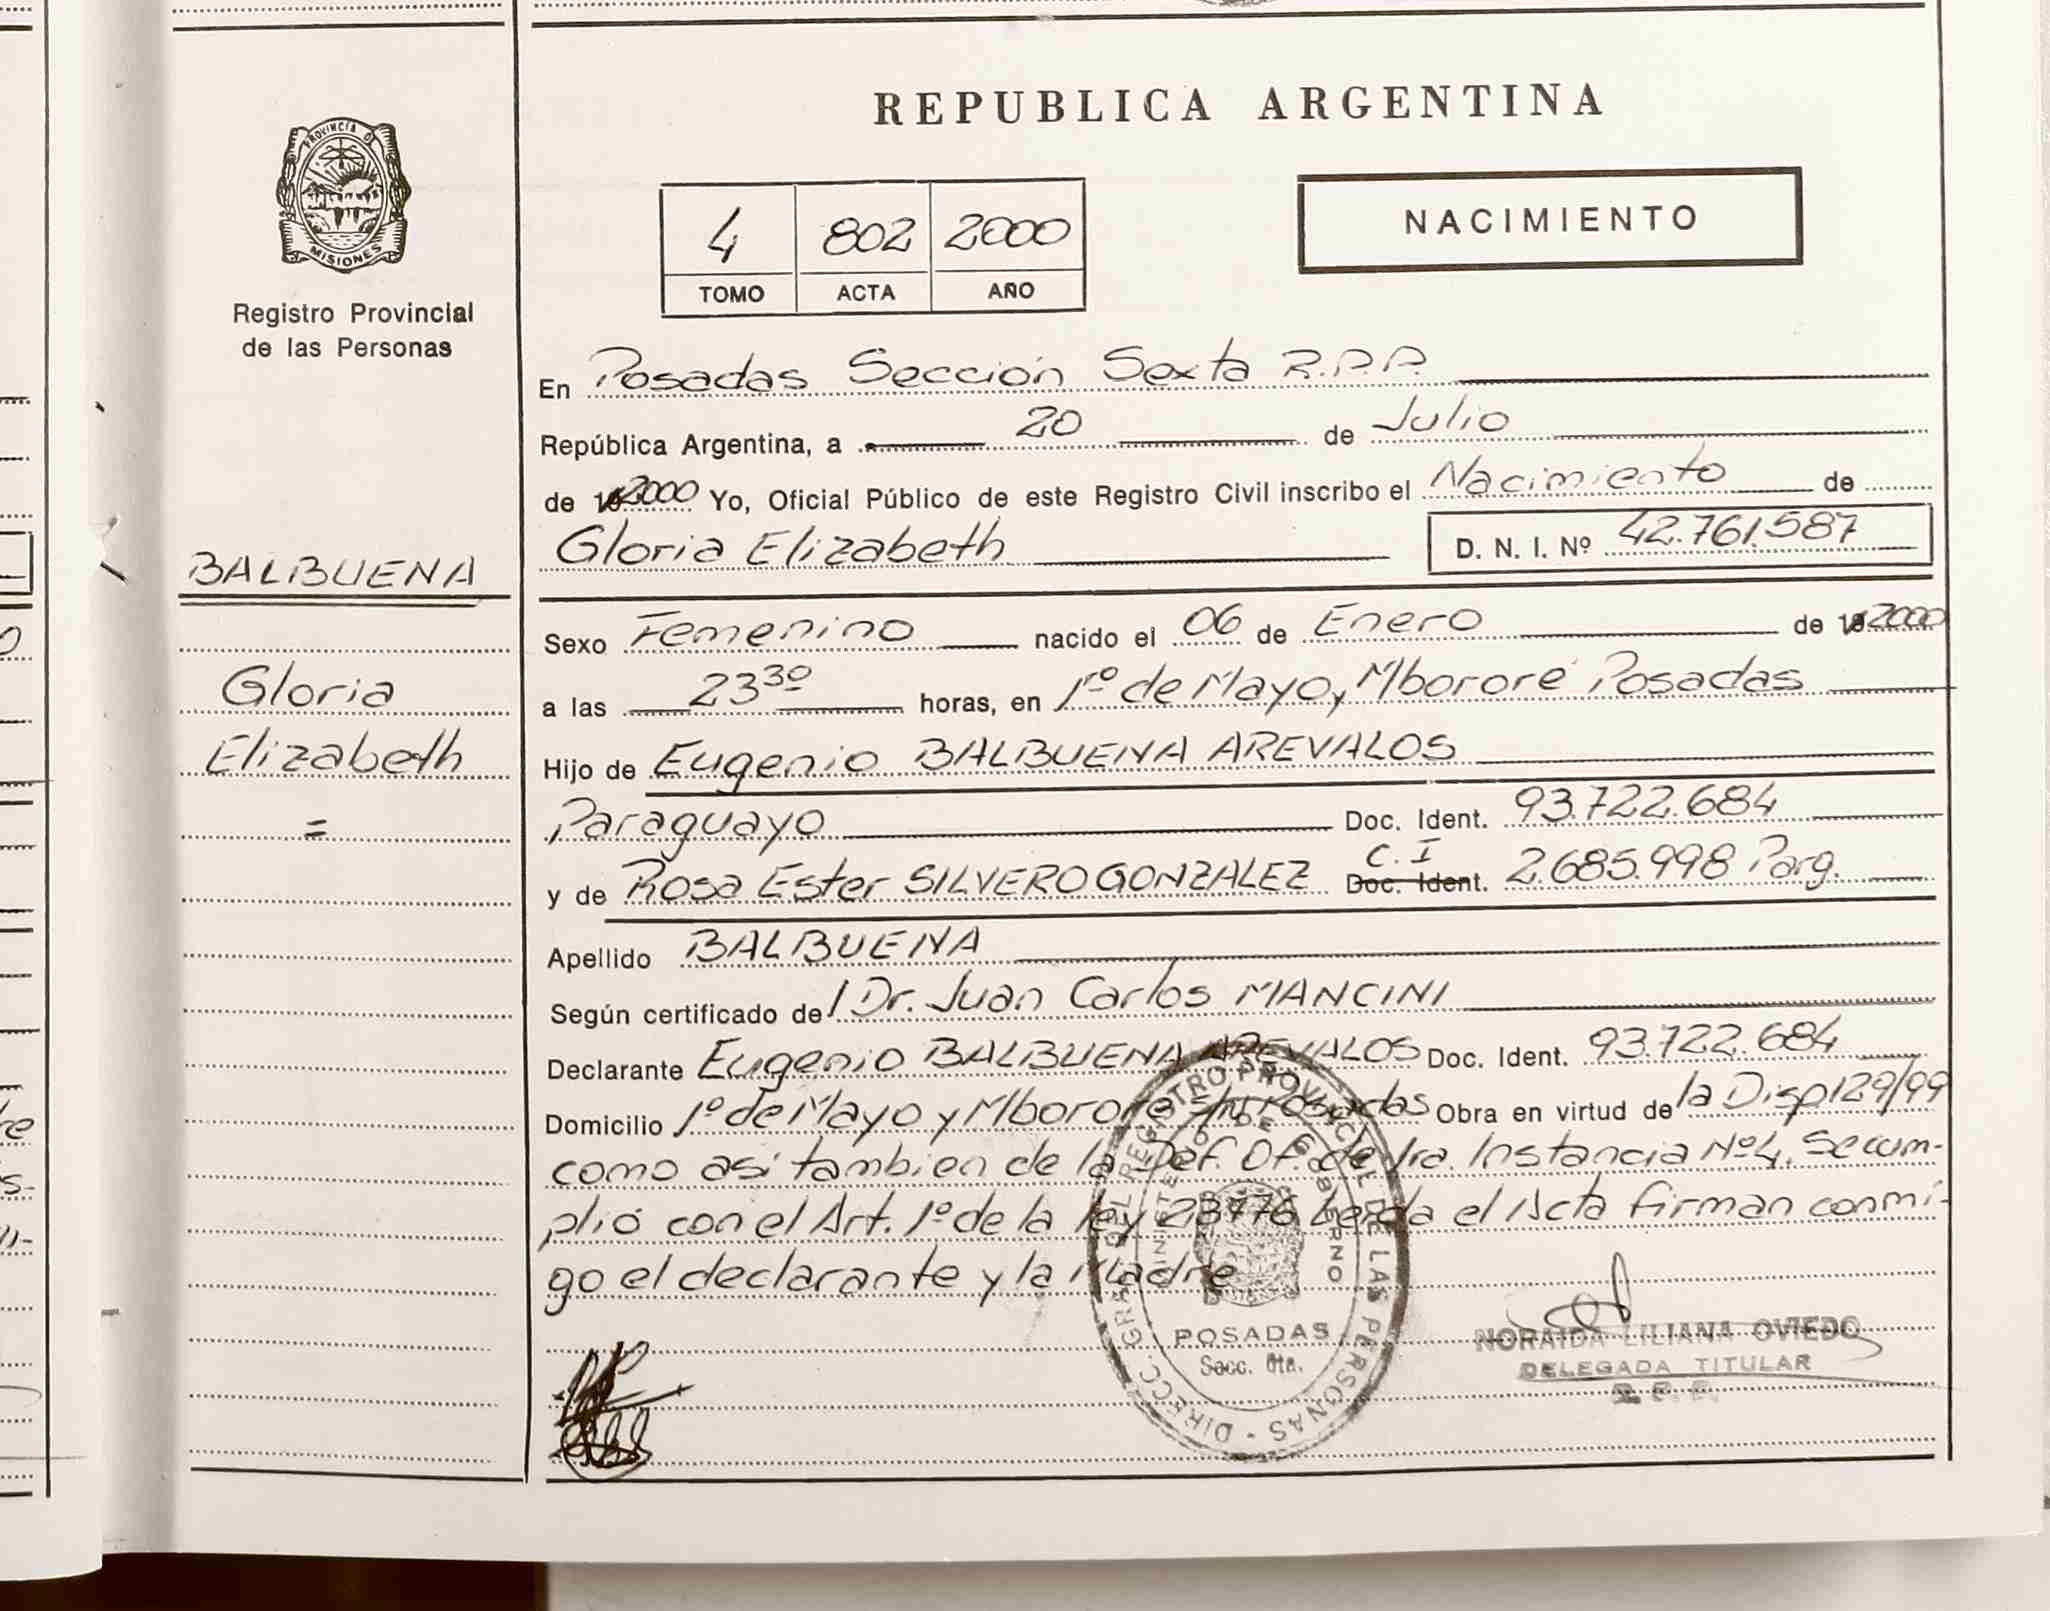 PROVINCIA DE
MISIONES
Registro Provincial
de las Personas
BALBUENA
Gloria
Elizabeth
=
REPUBLICA ARGENTINA
4 802 2000
TOMO ACTA AÑO
NACIMIENTO
En Posadas Sección Sexta R.P.P.
República Argentina, a 20 de Julio
de 2000 Yo, Oficial Público de este Registro Civil inscribo el Nacimiento de
Gloria Elizabeth D. N. I. Nº 42.761.587
Sexo Femenino nacido el 06 de Enero de 2000
a las 23³⁰ horas, en 1rº de Mayo y Mbororé Posadas
Hijo de Eugenio BALBUENA AREVALOS
Paraguayo Doc. Ident. 93.722.684
C.I
y de Rosa Ester SILVERO GONZALEZ Doc. Ident. 2.685.998 Parg.
Apellido BALBUENA
Según certificado de l Dr. Juan Carlos MANCINI
Declarante Eugenio BALBUENA AREVALOS Doc. Ident. 93.722.684
Domicilio 1º de Mayo y Mbororé Posadas Obra en virtud de la Disp 129/99
como asi tambien de la Def. Of. de 1ra. Instancia Nº 4, Se cum-
plió con el Art. 1º de la ley 23776 Leida el Acta firman conmi-
go el declarante y la Madre
DIRECC. GRAL. DEL REGISTRO PROVINCIAL DE LAS PERSONAS
MINISTERIO DE GOBIERNO
POSADAS
Secc. 6ta.
NORAIDA LILIANA OVIEDO
DELEGADA TITULAR
R. P. P.